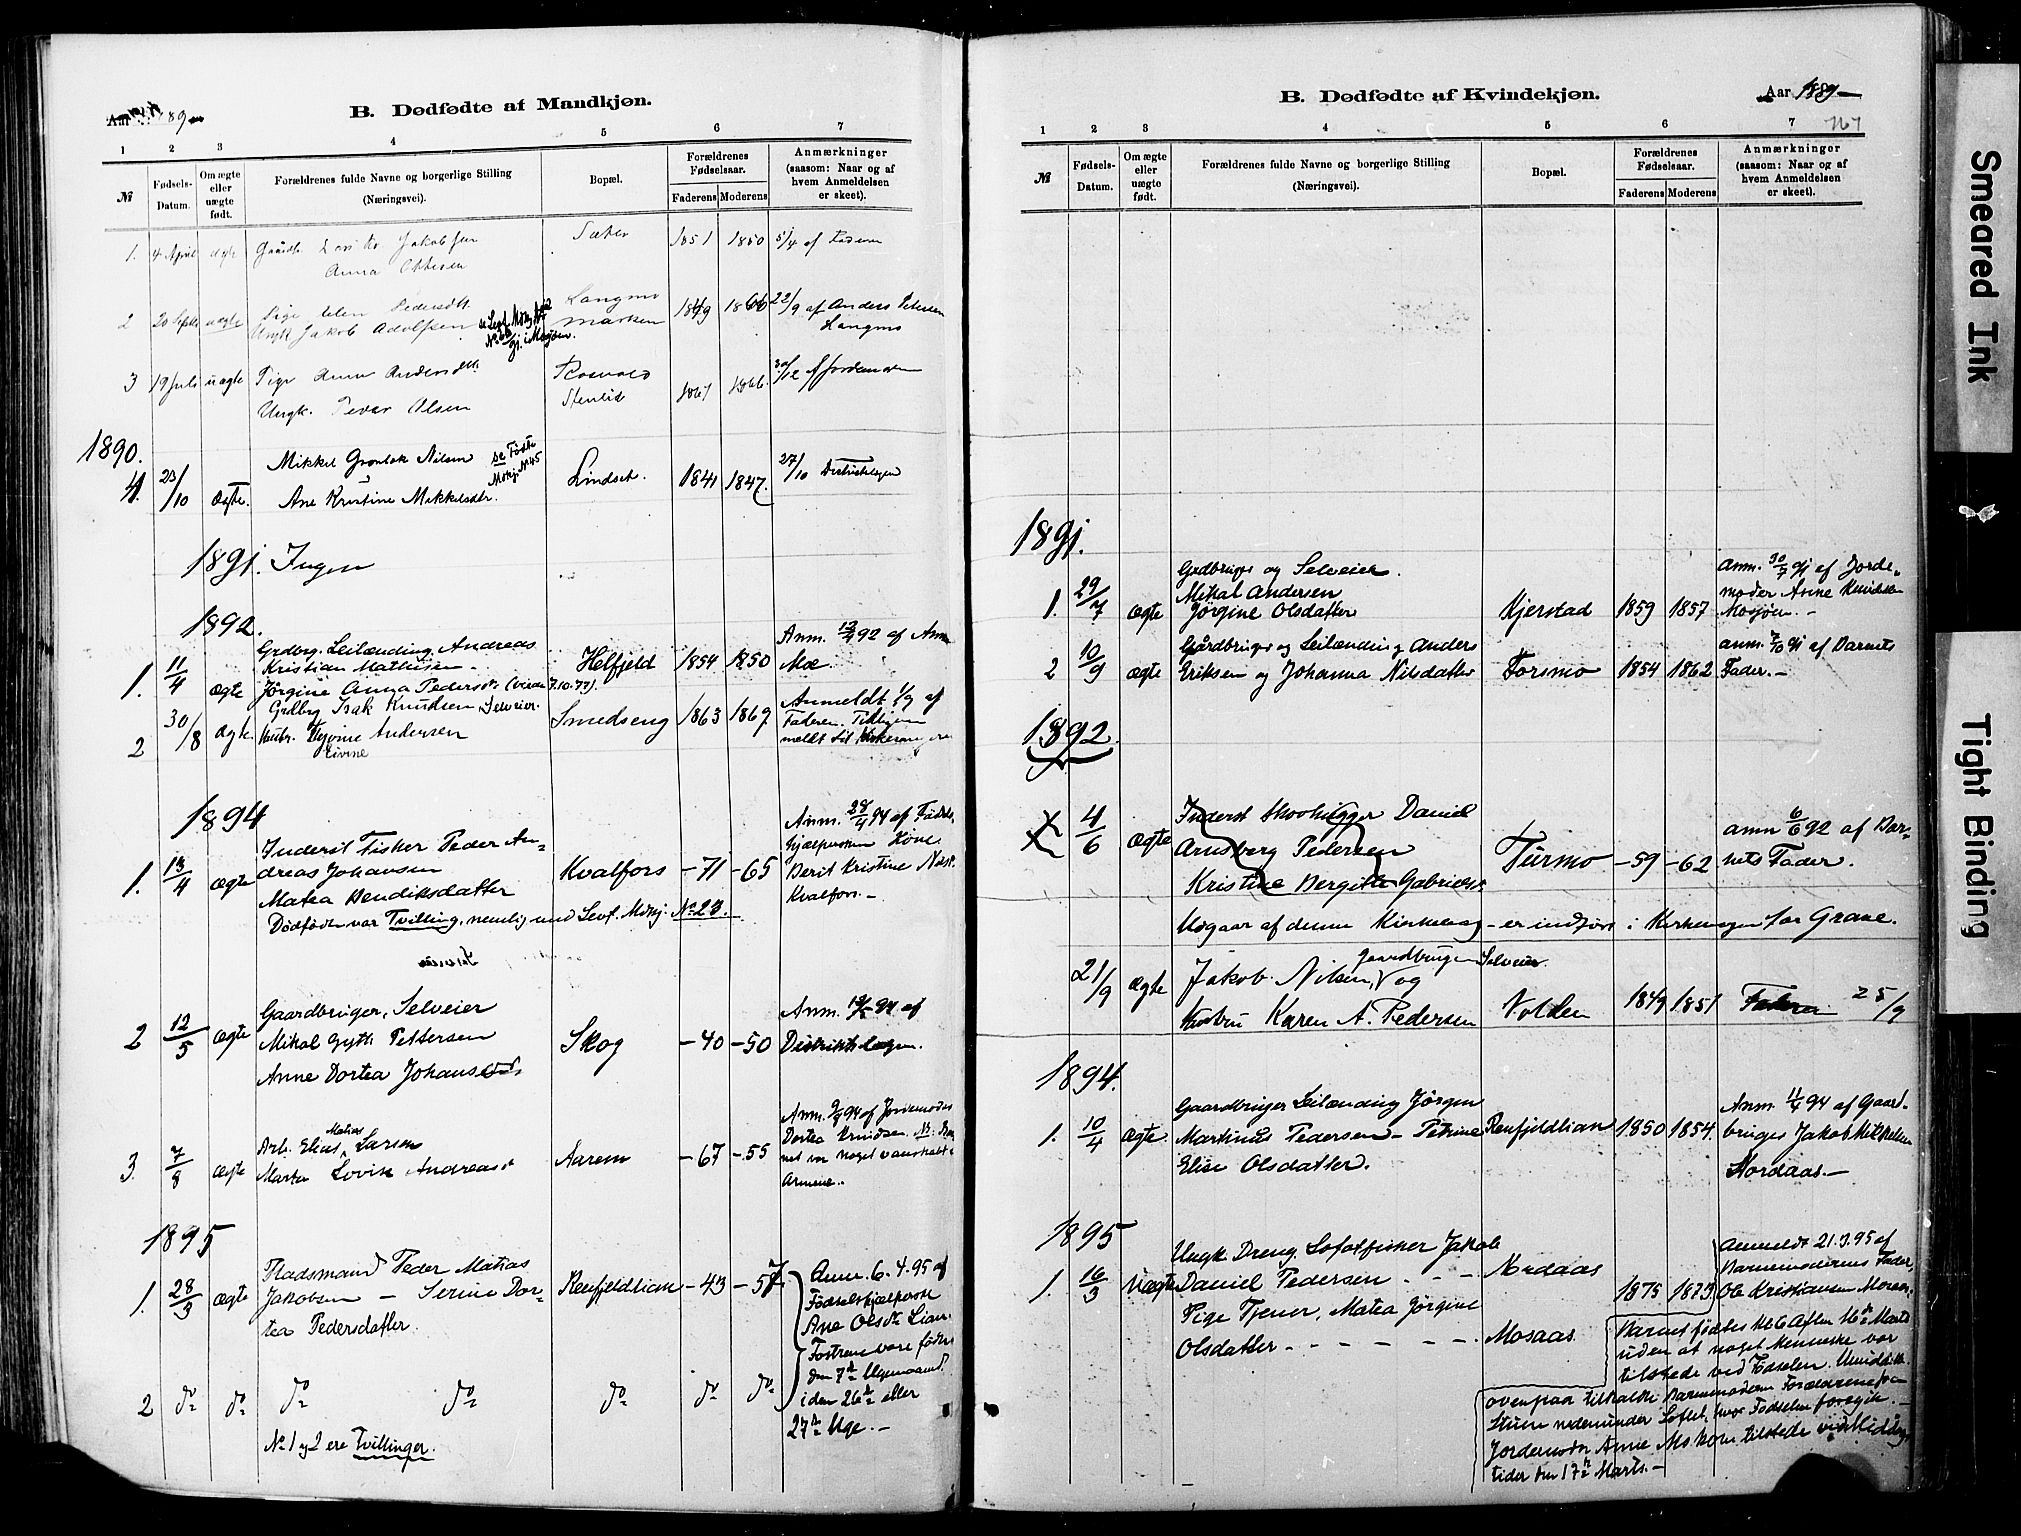 B. Dødfødte af Mandkjøn.
1 2 3 4 5 6 7
№
Fødsels-Datum.
Om ægte eller uægte født.
Forældrenes fulde Navne og borgerlige Stilling
(Næringsvei).
Bopæl.
Forældrenes Fødselsaar.
Faderens Moderens
Anmærkninger
(saasom: Naar og af
hvem Anmeldelsen
er skeet).
1. 4 April ægte Jakobsen 1851 1850 5/4 af Faderen
Anna Ottesen
2 20 Septbr uægte Pige Pedersdt. 1849 1866 22/9 af Anders Petersen
Ungk Jakob Adolfsen
3 19 Juli uægte Pige Anna Andersdtt. 1861 1866. 30/12 af Jordemoderen
Ungk. Peder Olsen Stenlid
1890.
4. 23/10 ægte. Mikkel Grønbek Nilsen se Fødte Mdkj № 45 Lindset. 1841 1847. 27/10 Distriktslægen
Ane Kristine Mikkelsdtr.
1891. Ingen
1892.
1. 11/4 ægte Grdbrg. Leilænding Andreas Helfjeld 1854 1850 Anm. 13/4 92 af Anna
Kristian Mathisen Moe
Jørgine Anna Pedersdtr (viede 7.10.77).
2 30/8 ægte Grdbrg Isak Knudsen Selveier. Smedseng 1863 1867 Anmeldt 1/9 af
Hustr. Andersen Faderen.
Eivine
1894
1. 13/4 ægte Inderst Fisker Peder An- Kvalfors -71 -65 Anm. 28/4 94 af Fødsels-
dreas Johansen hjælpersken Kone
Matea Hendiksdatter Berit Kristine Nilsd.
Kvalfors.-
Dødfødte var Tvilling, nemlig med Levf. Mdkj. № 23.
2 12/5 ægte Gaardbruger, Selveier Skog -40 -50 Anm. 94 af
Mikal Gyth Pettersen Distriktslægen.
Anne Dortea Johansdtr
3. 7/8 ægte Arb. Elias Matias Larsen Aarem -67 -55 Anm. 94 af Jordemoder
Marta Lovise Andreasdt Dortea Knudsen.
1895
1. 28/3 ægte Pladsmand Peder Matias Renfjeldlian -43 -57 Anm. 6.4.95 af
Jakobsen - Serine Dor- Fødselshjælperske
tea Pedersdatter. Ane Olsdtr Lian.
Fostrene vare fødte
den 7de Ugemaaned
i den 26de eller
27de Uge.-
2 do do do do do do do
№ 1 og 2 ere Tvillinger.
B. Dødfødte af Kvindekjøn. Aar 1889
1 2 3 4 5 6 7
№
Fødsels-Datum.
Om ægte eller uægte født.
Forældrenes fulde Navne og borgerlige Stilling
(Næringsvei).
Bopæl.
Forældrenes Fødselsaar.
Faderens Moderens
Anmærkninger
(saasom: Naar og af
hvem Anmeldelsen
er skeet).
1891.
1. 29/7 ægte Grdbruger og Selveier. Kjerstad 1859 1857 anm. 30/7 91 af Jorde-
Mikal Andersen moder Anne Knudsen
Jørgine Olsdatter Mosjøen.-
2 10/9 ægte Gårdbruger og Leilænding Anders Forsmo 1854 1862 anm. 7/10 91 af Barnets
Eriksen og Johanna Nilsdatter Fader.-
1892.
4/6 ægte Inderst Skovhugger Daniel Turmo -59 -62 anm 6/6 92 af Bar-
Arnsberg Pedersen nets Fader.
Kristine Bergitte Gabrielsd
Udgaar af denne Kirkebog - er indført i Kirkebogen for Grane.
21/9 ægte Jakob Nilsen, Gaardbruger Selveier og Volden 1849 1851 Faderen 25/9
Hustru Karen A. Pedersen
1894.
1. 10/4 ægte. Gaardbruger Leilænding Jørgen Renfjeldlian 1850 1854. Anm. 11/4 94 af Gaard-
Martinus Pedersen - Petrine bruger Jakob Mikkelsen
Elise Olsdatter. Nordaas.-
1895
1. 16/3 Uægte Ungk. Dreng. Lofotfisker Jakob Nordaas 1875 1873 Anmeldt 21.3.95 af
Daniel Pedersen - - - Barnemoderens Fader,
Pige Tjener, Matea Jørgine Ole Kristiansen Mosaas.
Olsdatter - - - - - Mosaas.
Barnet fødtes Kl. 6 Aften 16de Marts
uden at noget Menneske var
tilstede ved Fødselen. Umiddelb.
ovenpaa tilkaldte Barnemoderen Forældrene fra
Stuen nedenunder Loftet, hvor Fødselen foregik.-
Jordemoder Anne Moskorn tilstede ved Middags-
tider den 17de Marts.-
Smeared Ink
Tight Binding